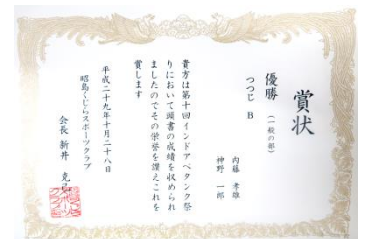 賞状
優勝 (一般の部)
つつじ B
内藤 孝雄
神野 一郎
貴方は第十回インドアペタンク祭
りにおいて頭書の成績を収められ
ましたのでその栄誉を讃えこれを
賞します
平成二十九年十月二十八日
昭島くじらスポーツクラブ
会長 新井